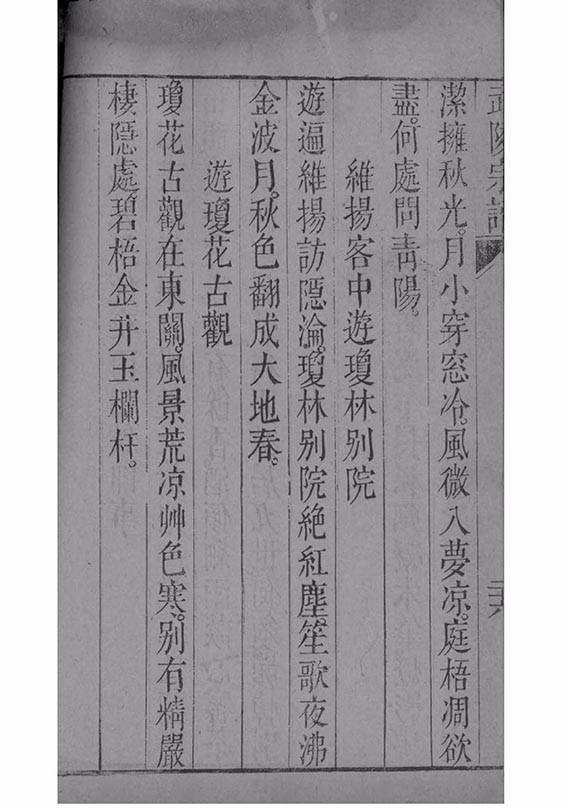 潔擁秋光。月小穿窓冷。風微入夢凉。庭梧凋欲
盡。何處問靑陽。
維揚客中遊瓊林別院
遊遍維揚訪隱淪。瓊林別院絶紅塵。笙歌夜沸
金波月。秋色翻成大地春。
遊瓊花古觀
瓊花古觀在東關。風景荒凉艸色寒。別有精嚴
棲隱處。碧梧金井玉欄杆。